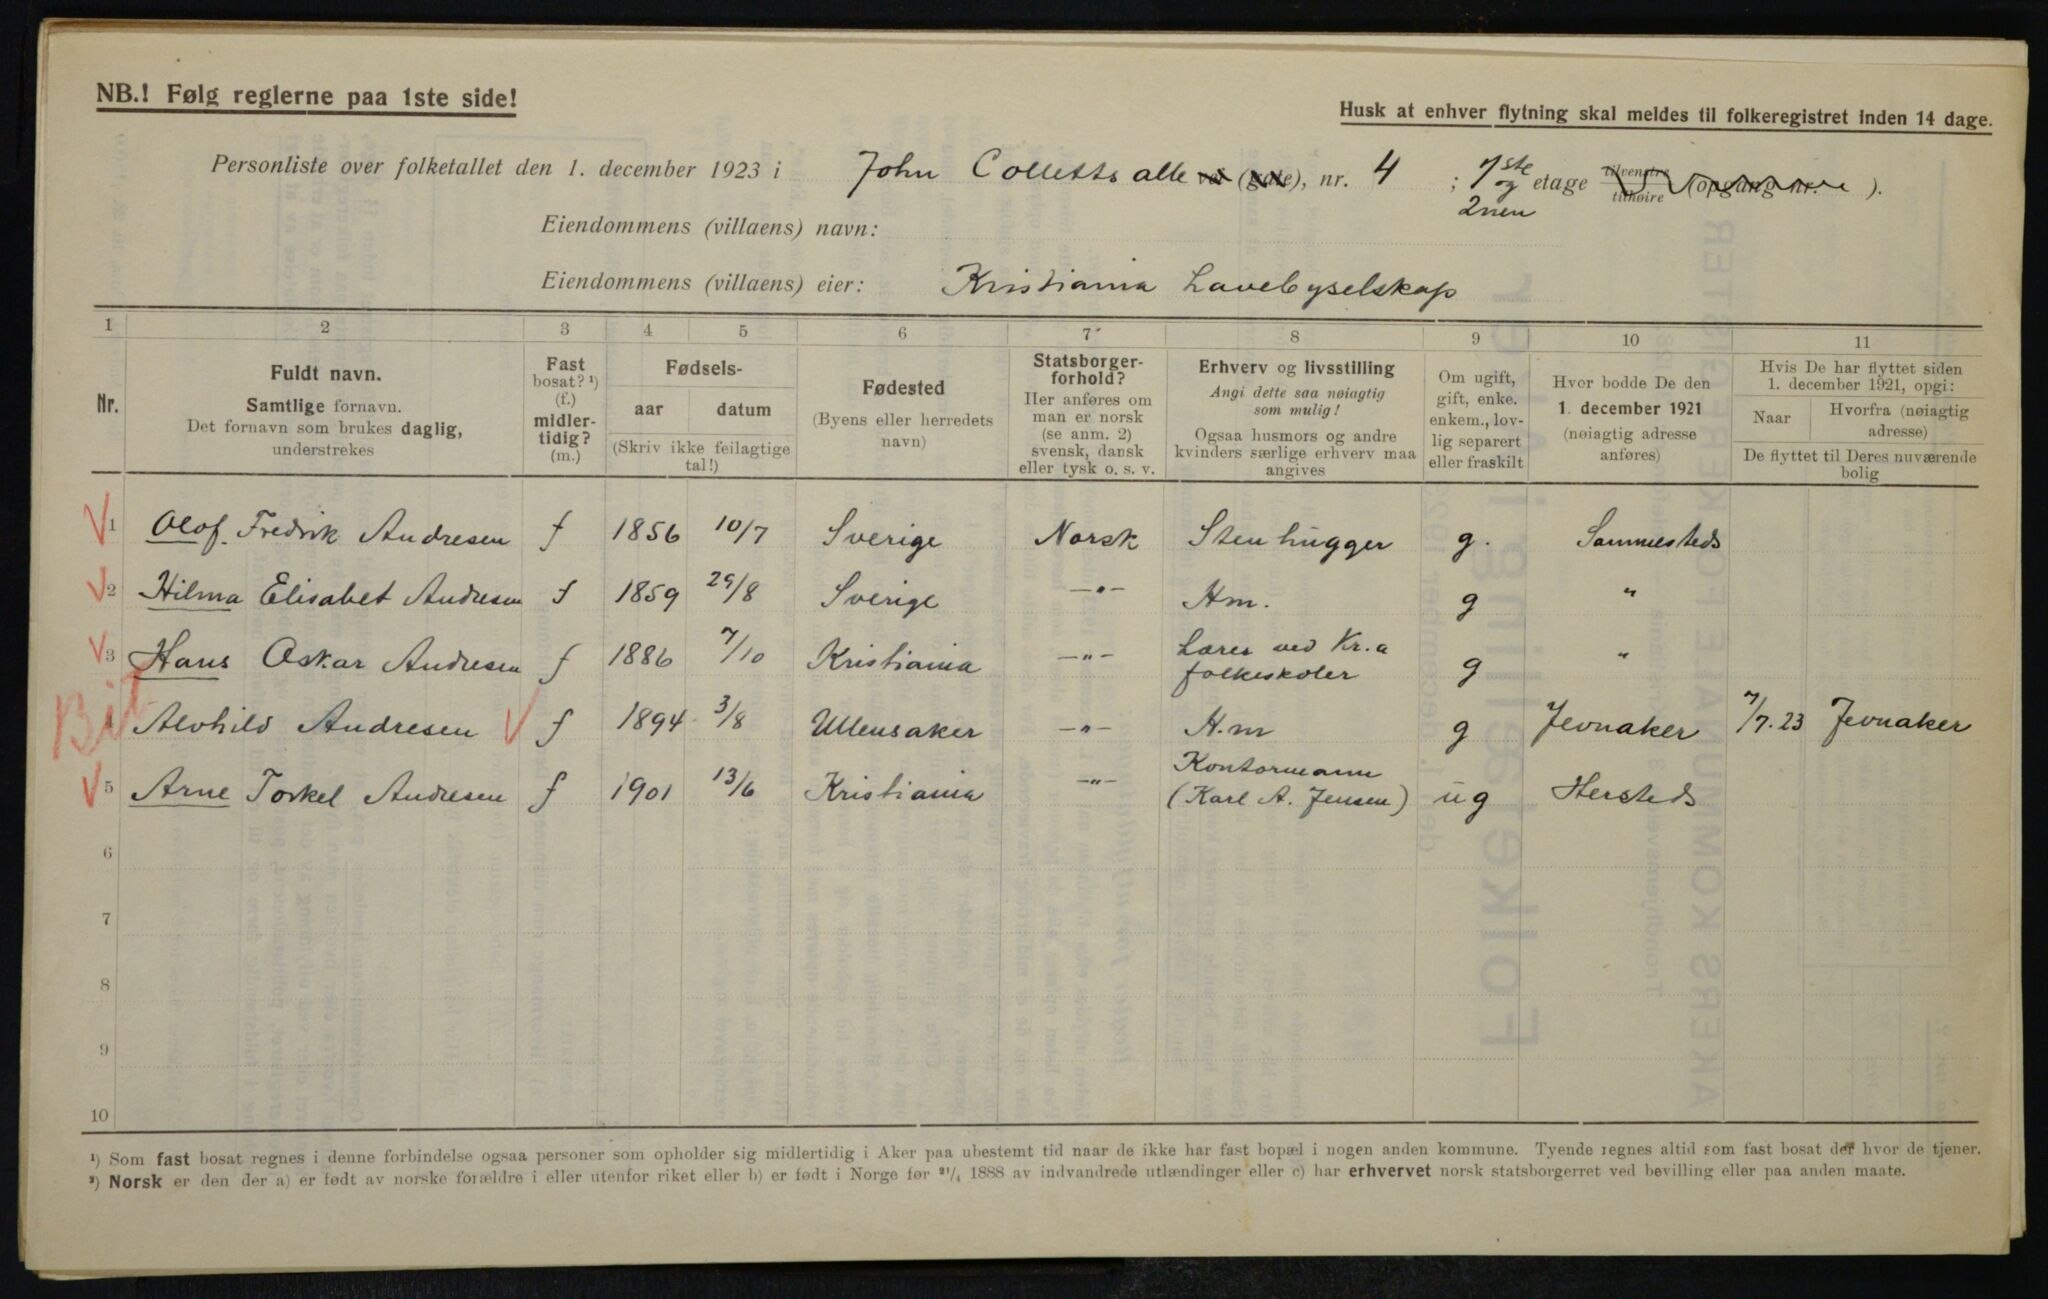 NB.! Følg reglerne paa 1ste side!
Husk at enhver flytning skal meldes til folkeregistret inden 14 dage.
Personliste over folketallet den 1. december 1923 i John Colletts alle vei (gate), nr. 4 ; 1ste og 2nen etage tilvenstre tilhøire (opgang nr. ).
Eiendommens (villaens) navn:
Eiendommens (villaens) eier: Kristiania Havebyselskap
1 2 3 4 5 6 7 8 9 10 11
Nr.
Fuldt navn.
Samtlige fornavn.
Det fornavn som brukes daglig,
understrekes
Fast
bosat? ¹)
(f.)
midler-
tidig?
(m.)
Fødsels-
aar datum
(Skriv ikke feilagtige
tal!)
Fødested
(Byens eller herredets
navn)
Statsborger-
forhold?
Her anføres om
man er norsk
(se anm. 2)
svensk, dansk
eller tysk o. s. v.
Erhverv og livsstilling
Angi dette saa nøiagtig
som mulig!
Ogsaa husmors og andre
kvinders særlige erhverv maa
angives
Om ugift,
gift, enke.
enkem., lov-
lig separert
eller fraskilt
Hvor bodde De den
1. december 1921
(nøiagtig adresse
anføres)
Hvis De har flyttet siden
1. december 1921, opgi:
Naar Hvorfra (nøiagtig
adresse)
De flyttet til Deres nuværende
bolig
1 Olof Fredrik Andresen f 1856 10/7 Sverige Norsk Stenhugger g. Sammesteds
2 Hilma Elisabet Andresen f 1859 29/8 Sverige —"— Hm. g "
3 Hans Oskar Andresen f 1886 7/10 Kristiania —"— Lærer ved Kr.a folkeskoler g "
Bit
4 Alvhild Andresen f 1894 3/8 Ullensaker —"— H.m g Jevnaker 7/7.23 Jevnaker
5 Arne Torkel Andresen f 1901 13/6 Kristiania —"— Kontormann (Karl A. Jensen) ug Hersteds
6
7
8
9
10
¹) Som fast bosat regnes i denne forbindelse ogsaa personer som opholder sig midlertidig i Aker paa ubestemt tid naar de ikke har fast bopæl i nogen anden kommune. Tyende regnes altid som fast bosat der hvor de tjener.
²) Norsk er den der a) er født av norske forældre i eller utenfor riket eller b) er født i Norge før ²¹/₄ 1888 av indvandrede utlændinger eller c) har erhvervet norsk statsborgerret ved bevilling eller paa anden maate.